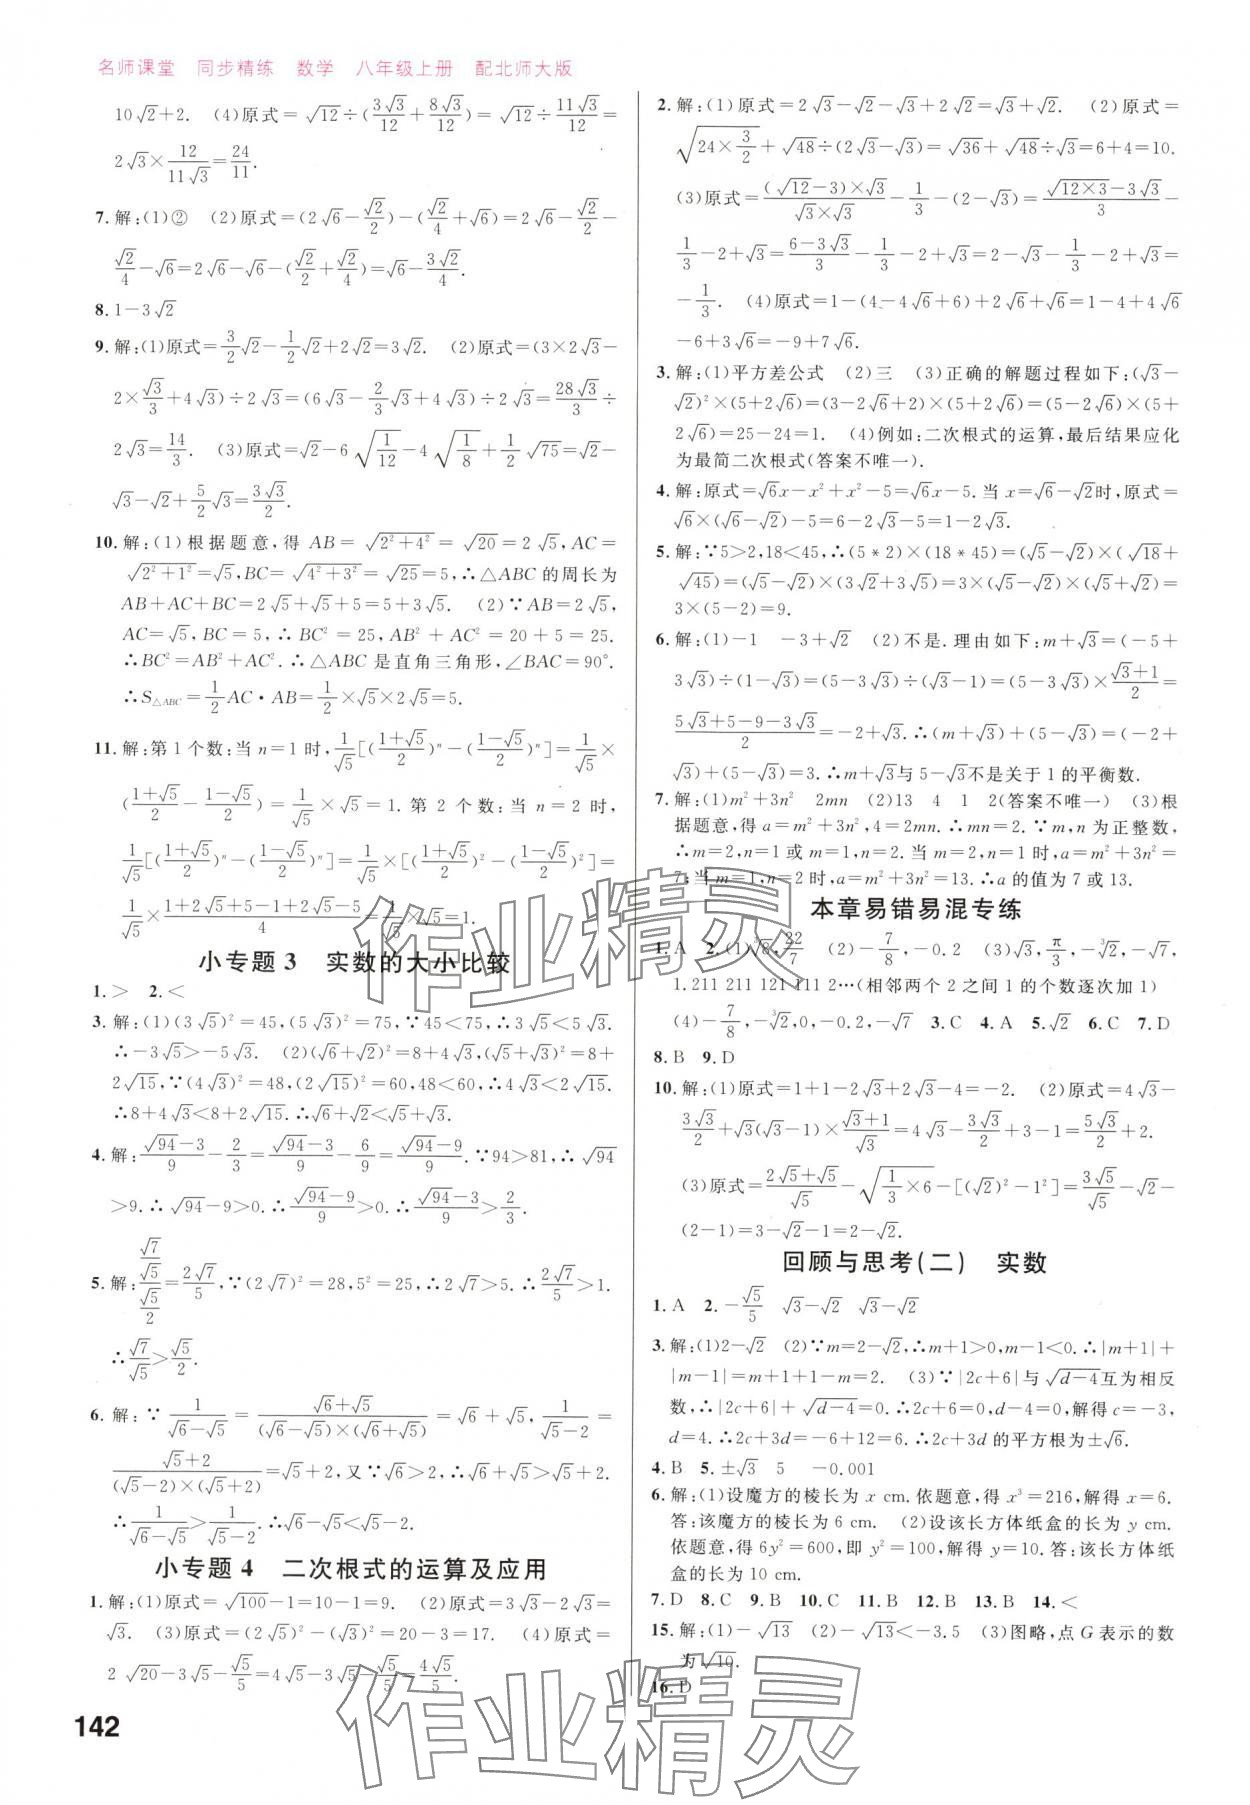 名师课堂 同步精练 数学 八年级上册 配北师大版
10√2+2. (4)原式=√12÷(3√3/12+8√3/12)=√12÷11√3/12=
2√3×12/(11√3)=24/11.
7.解:(1)② (2)原式=(2√6-√2/2)-(√2/4+√6)=2√6-√2/2-
√2/4-√6=2√6-√6-(√2/2+√2/4)=√6-3√2/4.
8.1-3√2
9.解:(1)原式=3/2√2-1/2√2+2√2=3√2. (2)原式=(3×2√3-
2×√3/3+4√3)÷2√3=(6√3-2/3√3+4√3)÷2√3=28√3/3÷
2√3=14/3. (3)原式=√2-6√(1/12)-4√(1/8)+1/2√75=√2-
√3-√2+5/2√3=3√3/2.
10.解:(1)根据题意,得 AB=√(2²+4²)=√20=2√5,AC=
√(2²+1²)=√5,BC=√(4²+3²)=√25=5,∴△ABC的周长为
AB+AC+BC=2√5+√5+5=5+3√5. (2)∵AB=2√5,
AC=√5,BC=5,∴BC²=25,AB²+AC²=20+5=25.
∴BC²=AB²+AC².∴△ABC是直角三角形,∠BAC=90°.
∴S△ABC=1/2AC·AB=1/2×√5×2√5=5.
11.解:第1个数:当n=1时,1/√5[((1+√5)/2)ⁿ-((1-√5)/2)ⁿ]=1/√5×
((1+√5)/2-(1-√5)/2)=1/√5×√5=1.第2个数:当n=2时,
1/√5[((1+√5)/2)ⁿ-((1-√5)/2)ⁿ]=1/√5×[((1+√5)/2)²-((1-√5)/2)²]=
1/√5×(1+2√5+5-1+2√5-5)/4=1/√5×√5=1.
小专题3 实数的大小比较
1.> 2.<
3.解:(1)(3√5)²=45,(5√3)²=75,∵45<75,∴3√5<5√3.
∴-3√5>-5√3. (2)(√6+√2)²=8+4√3,(√5+√3)²=8+
2√15,∵(4√3)²=48,(2√15)²=60,48<60,∴4√3<2√15.
∴8+4√3<8+2√15.∴√6+√2<√5+√3.
4.解:(√94-3)/9-2/3=(√94-3)/9-6/9=(√94-9)/9.∵94>81,∴√94
>9.∴√94-9>0.∴(√94-9)/9>0.∴(√94-3)/9>2/3.
5.解:(√7/√5)/(√5/2)=2√7/5,∵(2√7)²=28,5²=25,∴2√7>5.∴2√7/5>1.
∴√7/√5>√5/2.
6.解:∵1/(√6-√5)=(√6+√5)/((√6-√5)×(√6+√5))=√6+√5,1/(√5-2)=
(√5+2)/((√5-2)×(√5+2))=√5+2,又∵√6+√5>√5+2.
∴1/(√6-√5)>1/(√5-2).∴√6-√5<√5-2.
小专题4 二次根式的运算及应用
1.解:(1)原式=√100-1=10-1=9. (2)原式=3√3-2√3=
√3. (3)原式=(2√5)²-(√3)²=20-3=17. (4)原式=
2√20-3√5-√5/5=4√5-3√5-√5/5=4√5/5.
142
2.解:(1)原式=2√3-√2-√3+2√2=√3+√2. (2)原式=
√(24×3/2)+√48÷(2√3-√3)=√36+√48÷√3=6+4=10.
(3)原式=((√12-3)×√3)/(√3×√3)-1/3-(2-√3)=(√(12×3)-3√3)/3-
1/3-2+√3=(6-3√3)/3-1/3-2+√3=2-√3-1/3-2+√3=
-1/3. (4)原式=1-(4-4√6+6)+2√6+√6=1-4+4√6
-6+3√6=-9+7√6.
3.解:(1)平方差公式 (2)三 (3)正确的解题过程如下:(√3-
√2)²×(5+2√6)=(3-2√6+2)×(5+2√6)=(5-2√6)×(5+
2√6)=25-24=1. (4)例如:二次根式的运算,最后结果应化
为最简二次根式(答案不唯一).
4.解:原式=√6x-x²+x²-5=√6x-5.当x=√6-√2时,原式=
√6×(√6-√2)-5=6-2√3-5=1-2√3.
5.解:∵5>2,18<45,∴(5*2)×(18*45)=(√5-√2)×(√18+
√45)=(√5-√2)×(3√2+3√5)=3×(√5-√2)×(√5+√2)=
3×(5-2)=9.
6.解:(1)-1 -3+√2 (2)不是.理由如下:m+√3=(-5+
3√3)÷(1-√3)=(5-3√3)÷(√3-1)=(5-3√3)×(√3+1)/2=
(5√3+5-9-3√3)/2=-2+√3.∴(m+√3)+(5-√3)=(-2+
√3)+(5-√3)=3.∴m+√3与5-√3不是关于1的平衡数.
7.解:(1)m²+3n² 2mn (2)13 4 1 2(答案不唯一) (3)根
据题意,得a=m²+3n²,4=2mn.∴mn=2.∵m,n为正整数,
∴m=2,n=1或m=1,n=2.当m=2,n=1时,a=m²+3n²=
7;当m=1,n=2时,a=m²+3n²=13.∴a的值为7或13.
本章易错易混专练
1.A 2.(1)³√8,22/7 (2)-7/8,-0.2 (3)√3,π/3,-³√2,-√7,
1.211 211 121 111 2…(相邻两个2之间1的个数逐次加1)
(4)-7/8,-³√2,0,-0.2,-√7 3.C 4.A 5.√2 6.C 7.D
8.B 9.D
10.解:(1)原式=1+1-2√3+2√3-4=-2. (2)原式=4√3-
3√3/2+√3(√3-1)×(√3+1)/√3=4√3-3√3/2+3-1=5√3/2+2.
(3)原式=(2√5+√5)/√5-√(1/3×6)-[(√2)²-1²]=3√5/√5-√2-
(2-1)=3-√2-1=2-√2.
回顾与思考(二) 实数
1.A 2.-√5/5 √3-√2 √3-√2
3.解:(1)2-√2 (2)∵m=2-√2,∴m+1>0,m-1<0.∴|m+1|+
|m-1|=m+1+1-m=2. (3)∵|2c+6|与√(d-4)互为相反
数,∴|2c+6|+√(d-4)=0.∴2c+6=0,d-4=0,解得c=-3,
d=4.∴2c+3d=-6+12=6.∴2c+3d的平方根为±√6.
4.B 5.±√3 5 -0.001
6.解:(1)设魔方的棱长为x cm.依题意,得x³=216,解得x=6.
答:该魔方的棱长为6 cm. (2)设该长方体纸盒的长为y cm.
依题意,得6y²=600,即y²=100,解得y=10.答:该长方体纸
盒的长为10 cm.
7.D 8.C 9.B 10.C 11.B 12.B 13.B 14.<
15.解:(1)-√13 (2)-√13<-3.5 (3)图略,点G表示的数
为√10.
16.D
作业精灵
作业精灵